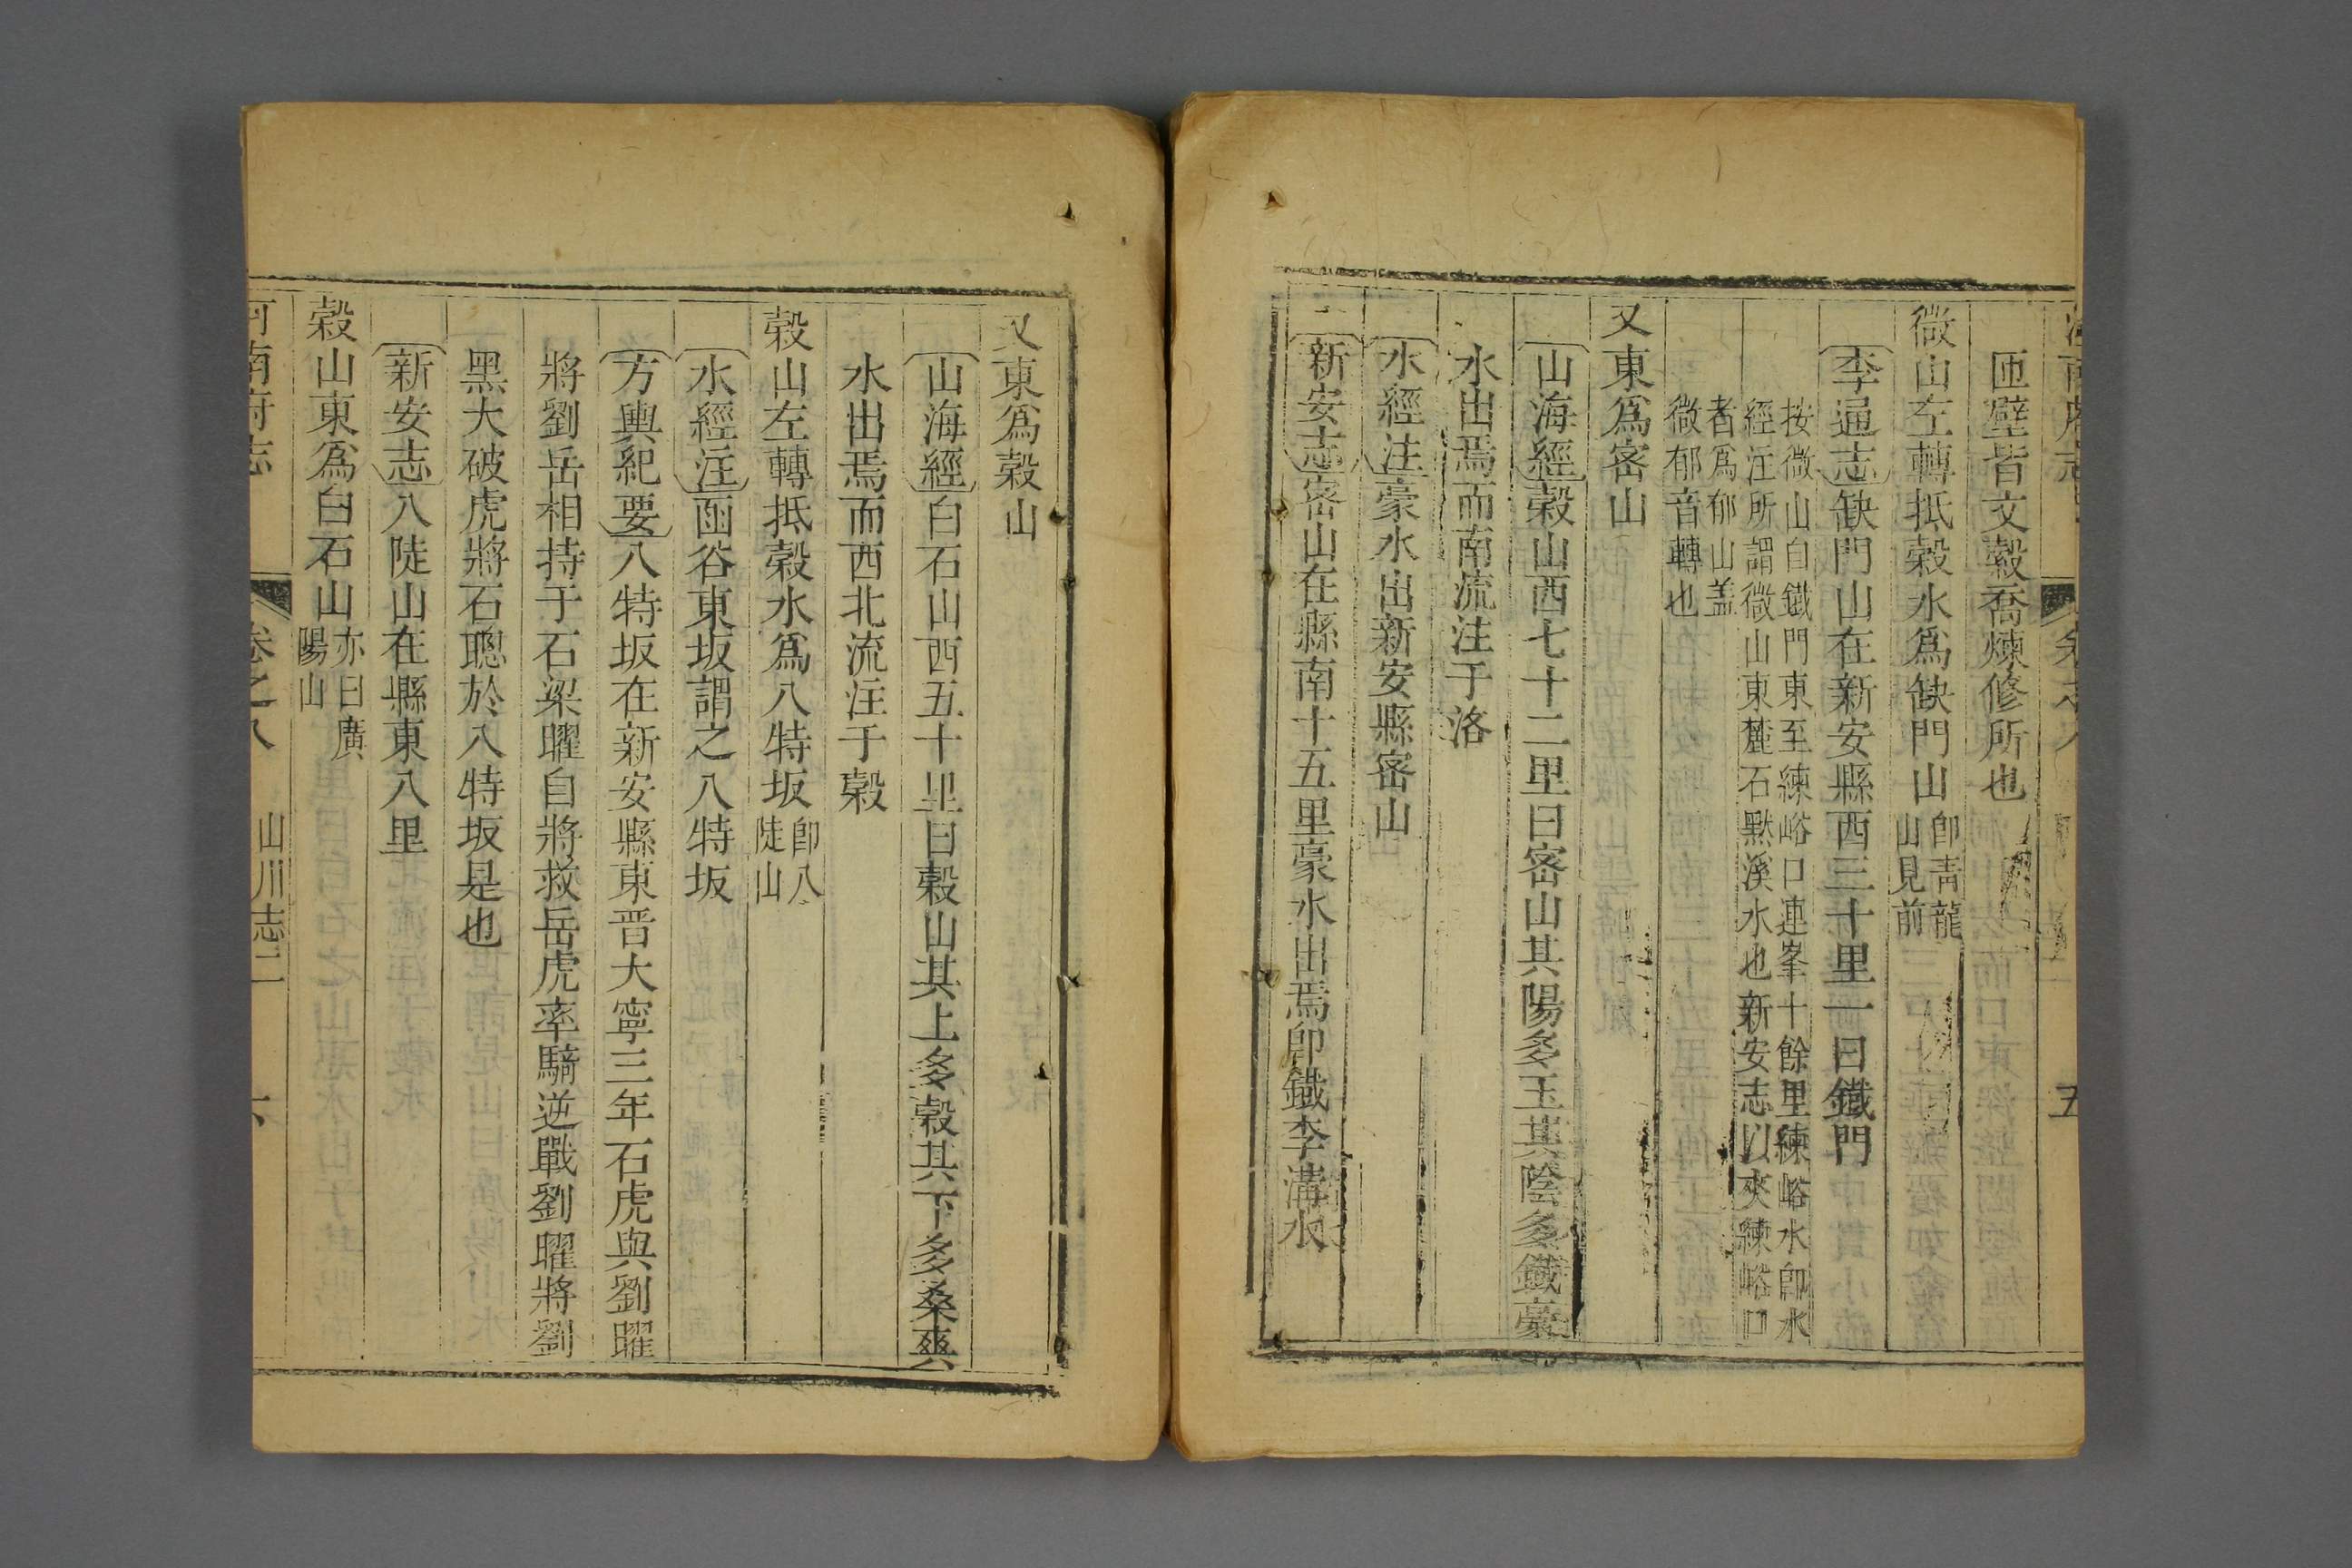 河南府志
卷之八
五
匝壁皆文穀喬煉修所也
微山左轉抵穀水爲缺門山卽青龍
山見前
李通志缺門山在新安縣西三十里一曰鐵門
按微山自鐵門東至練峪口連峯十餘里練峪水卽水
經注所謂微山東麓石默溪水也新安志以夾練峪口
者爲郁山盖
微郁音轉也
又東爲密山
山海經穀山西七十二里曰密山其陽多玉其陰多鐵豪
水出焉而南流注于洛
水經注豪水出新安縣密山
新安志密山在縣南十五里豪水出焉卽鐵李溝水
又東爲穀山
山海經白石山西五十里曰穀山其上多穀其下多桑爽
水出焉而西北流注于穀
穀山左轉抵穀水爲八特坂卽八
陡山
水經注函谷東坂謂之八特坂
方輿紀要八特坂在新安縣東晋大寧三年石虎與劉曜
將劉岳相持于石梁曜自將救岳虎率騎逆戰劉曜將劉
黑大破虎將石聰於八特坂是也
新安志八陡山在縣東八里
穀山東爲白石山亦曰廣
陽山
河南府志
卷之八
山川志二
六